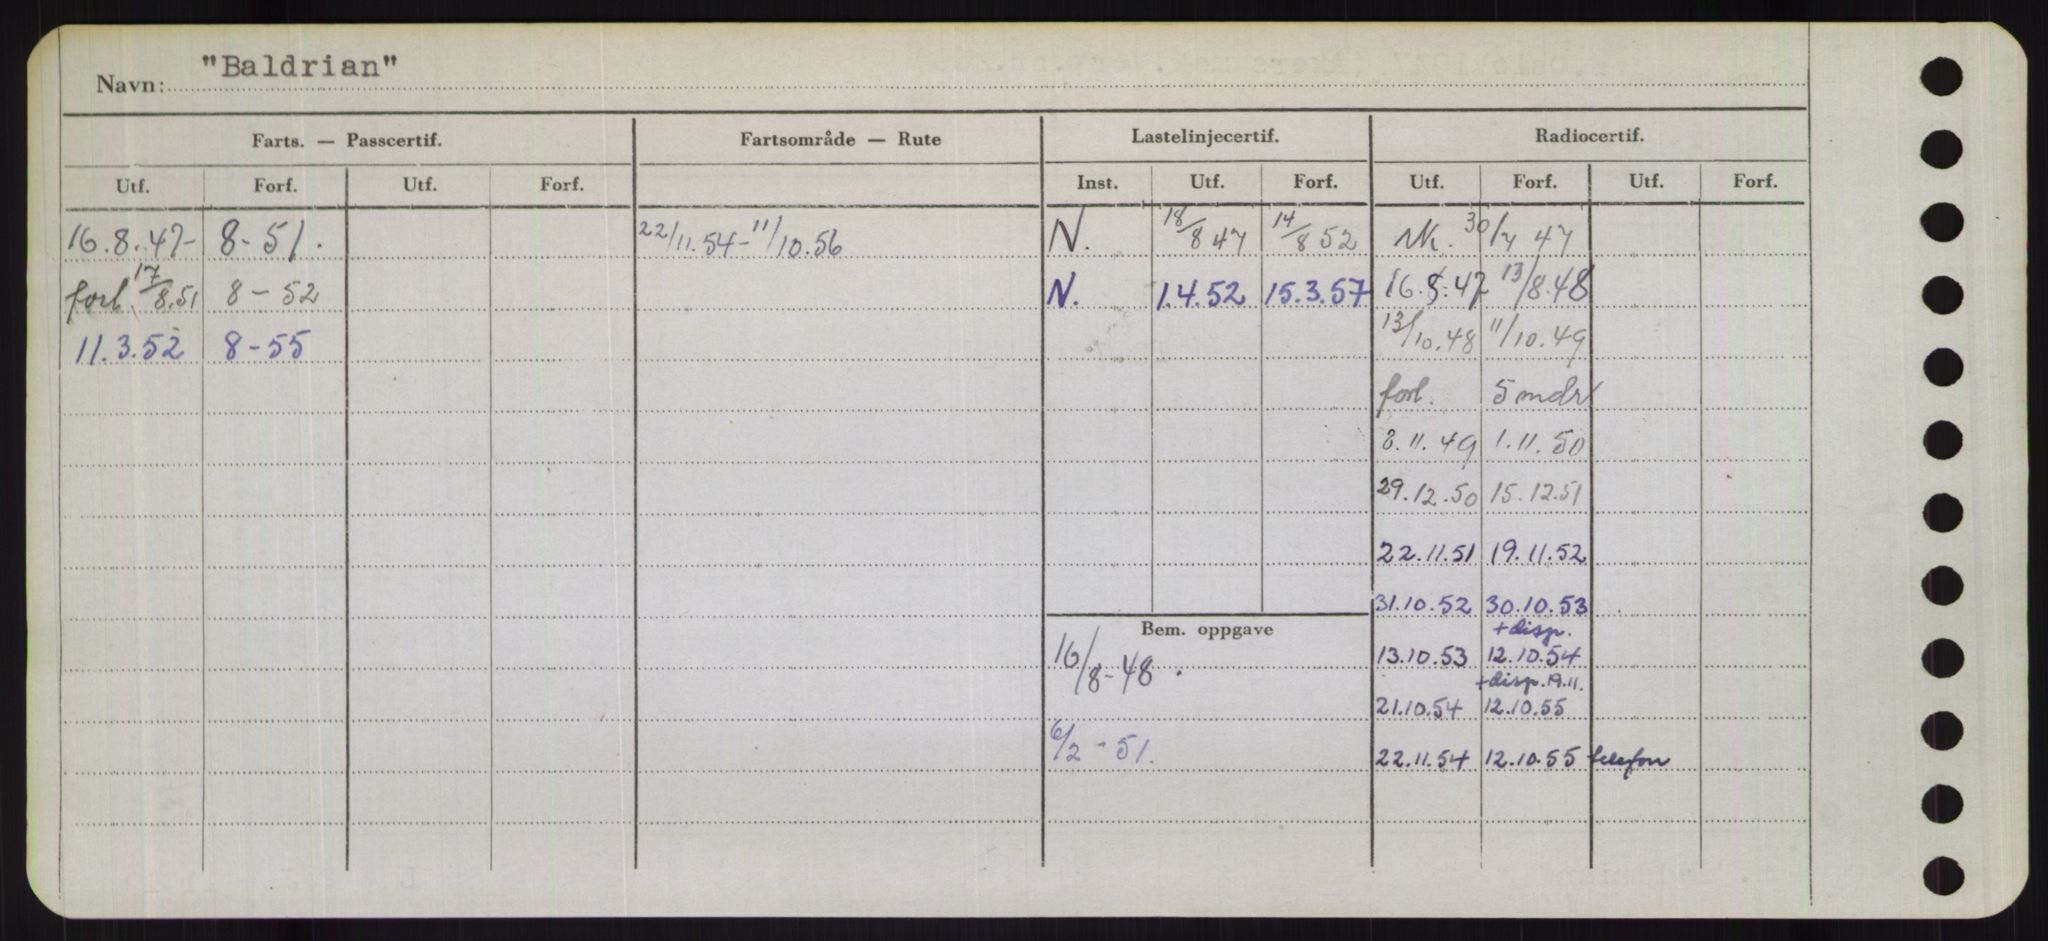 Navn: "Baldrian"
Farts. — Passcertif. Fartsområde — Rute Lastelinjecertif. Radiocertif.
Utf. Forf. Utf. Forf. Inst. Utf. Forf. Utf. Forf. Utf. Forf.
16.8.47- 8-51. 22/11.54-11/10.56 N. 18/8 47 14/8 52 30/7 47
forl. 17/8.51 8-52 N. 1.4.52 15.3.57 16.8.47 13/8.48
11.3.52 8-55 13/10.48 11/10.49
forl. 5 mdr
2.11.49 1.11.50
29.12.50 15.12.51
22.11.51 19.11.52
31.10.52 30.10.53
Bem. oppgave +disp.
16/8-48. 13.10.53 12.10.54
+disp.19.11.
21.10.54 12.10.55
6/2-51. 22.11.54 12.10.55 telefon